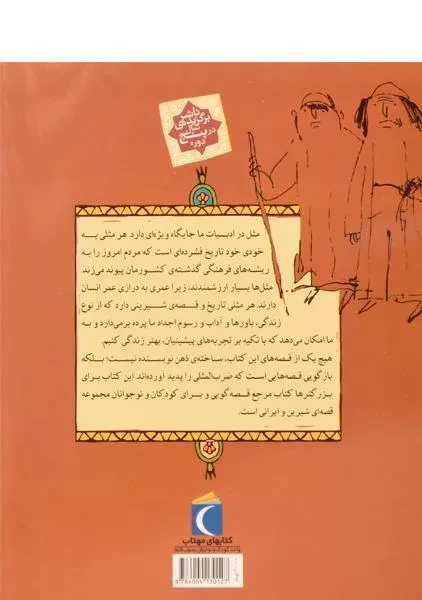 ناشر
برگزیده‌ی
سال
در پنج
دوره
مثل در ادبیات ما جایگاه ویژه‌ای دارد. هر مثلی به
خودی خود تاریخ فشرده‌ای است که مردم امروز را به
ریشه‌های فرهنگی گذشته‌ی کشورمان پیوند می‌زند
مثل‌ها بسیار ارزشمندند، زیرا عمری به درازی عمر انسان
دارند. هر مثلی تاریخ و قصه‌ی شیرینی دارد که از نوع
زندگی، باورها و آداب و رسوم اجداد ما پرده برمی‌دارد و به
ما امکان می‌دهد که با تکیه بر تجربه‌های پیشینیان، بهتر زندگی کنیم.
هیچ یک از قصه‌های این کتاب، ساخته‌ی ذهن نویسنده نیست؛ بلکه
بازگویی قصه‌هایی است که ضرب‌المثلی را پدید آورده‌اند. این کتاب برای
بزرگترها کتاب مرجع قصه‌گویی و برای کودکان و نوجوانان مجموعه
قصه‌ای شیرین و ایرانی است.
کتابهای مهتاب
واحد کودک و نوجوان
9 786004 130127